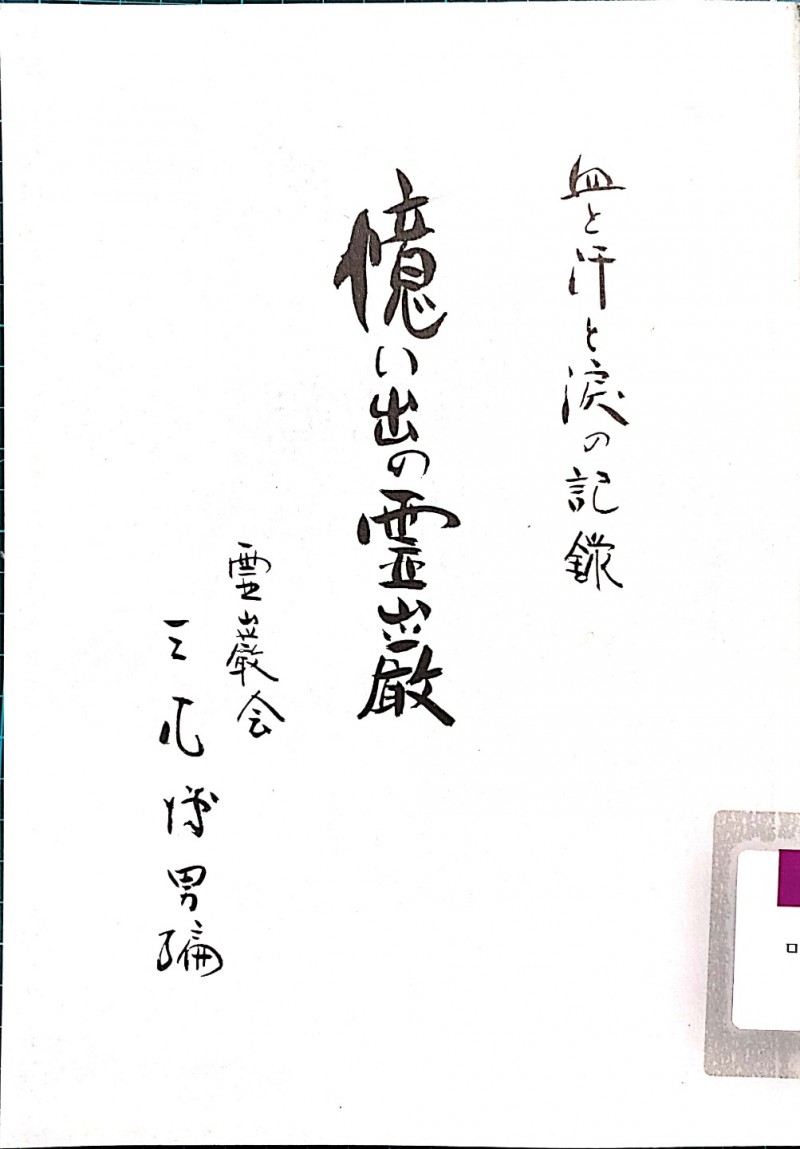 血と汗と涙の記録
憶い出の霊巌
霊巌会
三瓦博男編
ロ